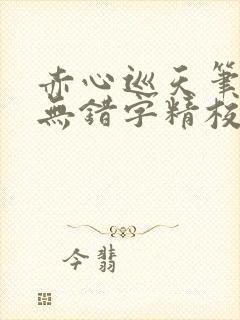 赤心巡天筆
無錯字精校
今翡